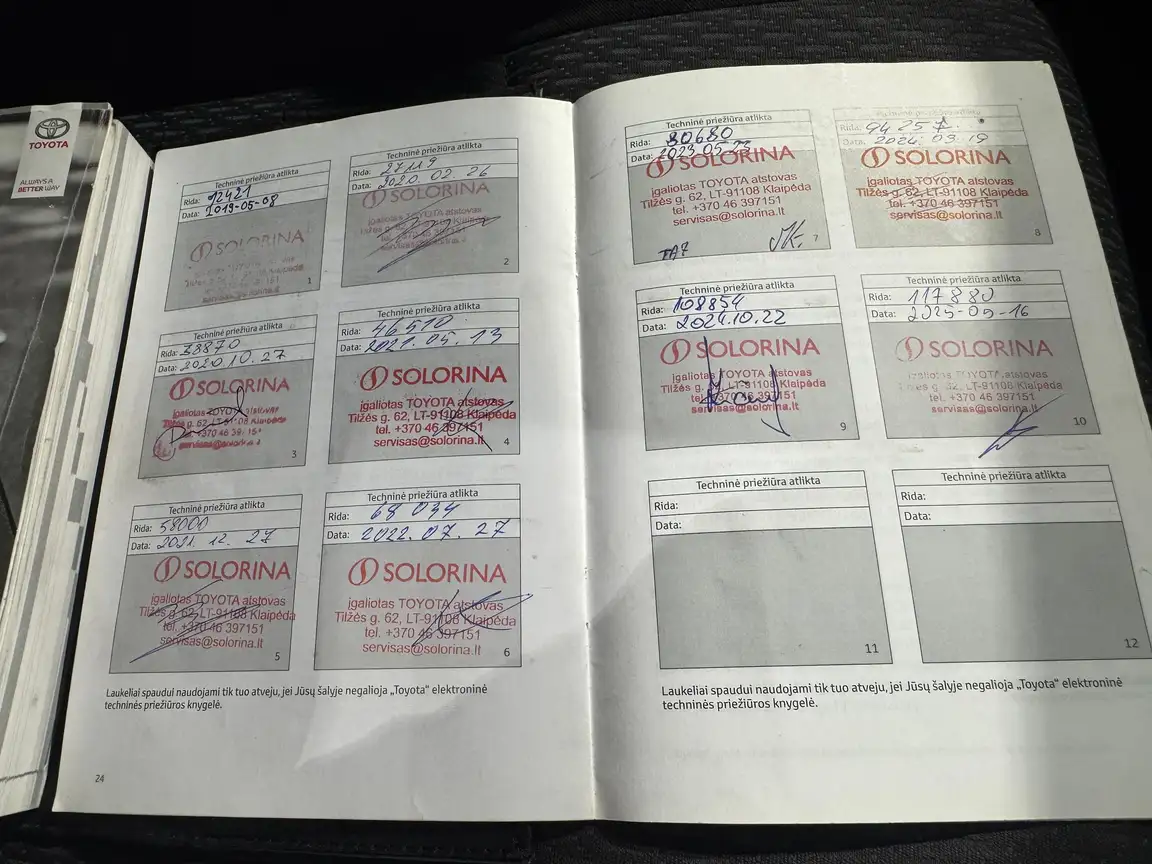 TOYOTA
ALWAYS A
BETTER WAY
Techninė priežiūra atlikta
Rida: 12421
Data: 2019-05-08
SOLORINA
1
Techninė priežiūra atlikta
Rida: 27119
Data: 2020.02.26
SOLORINA
įgaliotas TOYOTA atstovas
servisas@solorina.lt
2
Techninė priežiūra atlikta
Rida: 38870
Data: 2020.10.27
SOLORINA
įgaliotas TOYOTA atstovas
Tilžės g. 62, LT-91108 Klaipėda
tel. +370 46 397151
servisas@solorina.lt
3
Techninė priežiūra atlikta
Rida: 46510
Data: 2021.05.13
SOLORINA
įgaliotas TOYOTA atstovas
Tilžės g. 62, LT-91108 Klaipėda
tel. +370 46 397151
servisas@solorina.lt
4
Techninė priežiūra atlikta
Rida: 58000
Data: 2021.12.27
SOLORINA
įgaliotas TOYOTA atstovas
Tilžės g. 62, LT-91108 Klaipėda
tel. +370 46 397151
servisas@solorina.lt
5
Techninė priežiūra atlikta
Rida: 68034
Data: 2022.07.27
SOLORINA
įgaliotas TOYOTA atstovas
Tilžės g. 62, LT-91108 Klaipėda
tel. +370 46 397151
servisas@solorina.lt
6
Laukeliai spaudui naudojami tik tuo atveju, jei Jūsų šalyje negalioja „Toyota“ elektroninė
techninės priežiūros knygelė.
24
Techninė priežiūra atlikta
Rida: 80680
Data: 2023.05.23
SOLORINA
įgaliotas TOYOTA atstovas
Tilžės g. 62, LT-91108 Klaipėda
tel. +370 46 397151
servisas@solorina.lt
7
Techninė priežiūra atlikta
Rida: 94257.
Data: 2024.03.19
SOLORINA
įgaliotas TOYOTA atstovas
Tilžės g. 62, LT-91108 Klaipėda
tel. +370 46 397151
servisas@solorina.lt
8
Techninė priežiūra atlikta
Rida: 108854
Data: 2024.10.22
SOLORINA
įgaliotas TOYOTA atstovas
Tilžės g. 62, LT-91108 Klaipėda
tel. +370 46 397151
servisas@solorina.lt
9
Techninė priežiūra atlikta
Rida: 117880
Data: 2025-09-16
SOLORINA
įgaliotas TOYOTA atstovas
Tilžės g. 62, LT-91108 Klaipėda
tel. +370 46 397151
servisas@solorina.lt
10
Techninė priežiūra atlikta
Rida:
Data:
11
Techninė priežiūra atlikta
Rida:
Data:
12
Laukeliai spaudui naudojami tik tuo atveju, jei Jūsų šalyje negalioja „Toyota“ elektroninė
techninės priežiūros knygelė.